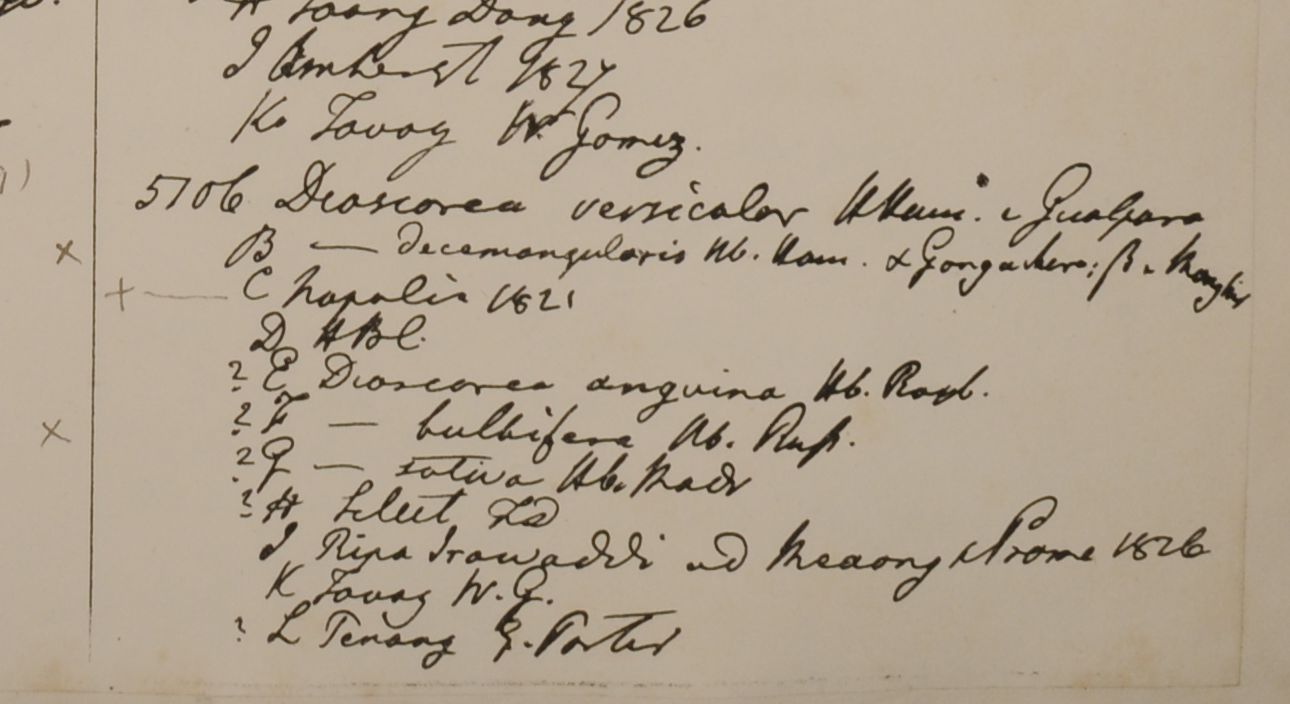 H Toong Dong 1826
I Amherst 1827
K. Tavoy W. Gomez.
5106 Dioscorea versicolor HHam. e Gualpara
B — decemangularis Hb. Ham. α Gongachora; β e
C Napalia 1821
D HBC.
? E Dioscorea anguina Hb. Roxb.
? F — bulbifera Hb. Russ.
? G — sativa Hb. Madr
? H
I Ripa Irawaddi ad Meaong & Prome 1826
K Tavoy W.G.
? L Penang G. Porter